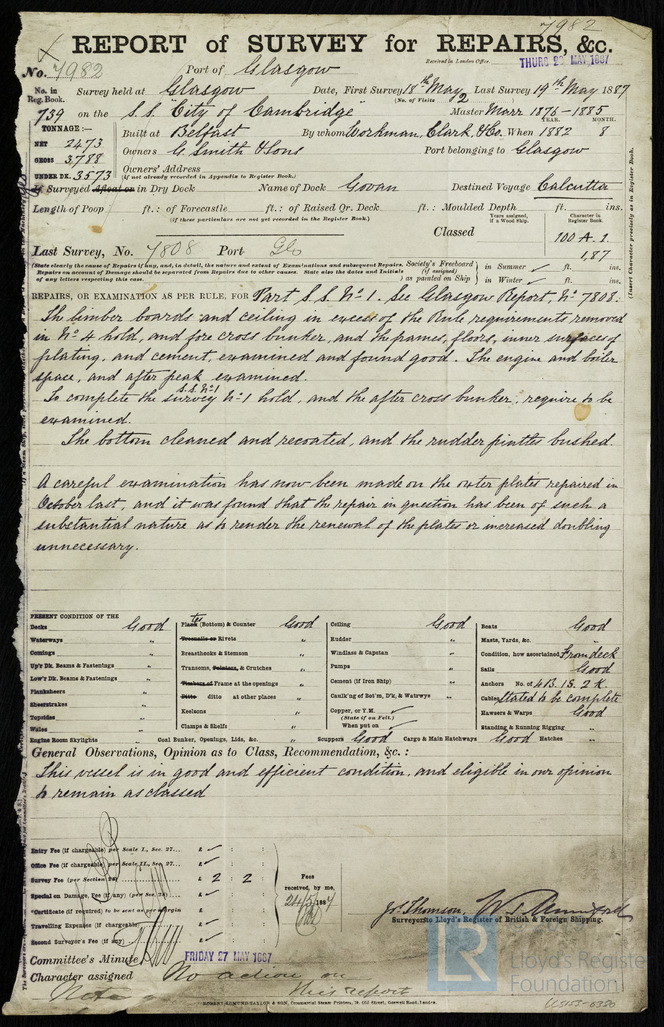 7982
REPORT of SURVEY for REPAIRS, &c.
Received in London Office
THURS 26 MAY 1887
No. 7982 Port of Glasgow
No. in Reg. Book. Survey held at Glasgow Date, First Survey 18th May Last Survey 19th May 1887
(No. of Visits 2)
739 on the S.S. "City of Cambridge" Master Marr 1876-1885
TONNAGE:— YEAR. MONTH.
NET 2473 Built at Belfast By whom Workman, Clark, & Co. When 1882 8
GROSS 3,788 Owners G. Smith & Sons Port belonging to Glasgow
UNDER DK. 3573 Owners' Address
(if not already recorded in Appendix to Register Book.)
If Surveyed Afloat or in Dry Dock Name of Dock Govan Destined Voyage Calcutta
Length of Poop ft.: of Forecastle ft.: of Raised Qr. Deck ft.: Moulded Depth ft. ins.
(if these particulars are not yet recorded in the Register Book.)
Years assigned, if a Wood Ship. Character in Register Book.
Classed 100 A. 1.
1,87
Last Survey, No. 7808 Port Gls
(State clearly the cause of Repairs if any, and, in detail, the nature and extent of Examinations and subsequent Repairs.
Repairs on account of Damage should be separated from Repairs due to other causes. State also the dates and Initials
of any letters respecting this case.
Society's Freeboard (if assigned) as painted on Ship in Summer ft. ins.
in Winter ft. ins.
(Insert Character precisely as in Register Book.
REPAIRS, OR EXAMINATION AS PER RULE, FOR Part S.S. No 1. See Glasgow Report, No 7808.
The limber boards and ceiling in excess of the Rule requirements removed
in No 4 hold, and fore cross bunker, and the frames, floors, inner surfaces of
plating, and cement, examined and found good. The engine and boiler
space, and after peak examined.
S.S. No 1
To complete the survey No 1 hold, and the after cross bunker, require to be
examined.
The bottom cleaned and recoated, and the rudder pintles bushed.
A careful examination has now been made on the outer plates repaired in
October last, and it was found that the repair in question has been of such a
substantial nature as to render the renewal of the plates or increased doubling
unnecessary.
PRESENT CONDITION OF THE
Decks Good
Waterways "
Comings "
Up'r Dk. Beams & Fastenings "
Low'r Dk. Beams & Fastenings "
Planksheers
Sheerstrakes "
Topsides "
Wales "
Engine Room Skylights "
Plates (Bottom) & Counter Good
Treenails or Rivets "
Breasthooks & Stemson "
Transoms, Pointers, & Crutches "
Timbers of Frame at the openings "
Ditto ditto at other places "
Keelsons "
Clamps & Shelfs "
Coal Bunker, Openings, Lids, &c. "
Ceiling Good
Rudder "
Windlass & Capstan "
Pumps "
Cement (if Iron Ship) "
Caulk'ng of Bot'm, D'k, & Watrwys "
Copper, or Y.M.
(State if on Felt.)
When put on
Scuppers Good Cargo & Main Hatchways Good Hatches "
Boats Good
Masts, Yards, &c. "
Condition, how ascertained From deck
Sails Good
Anchors No. of 4 B. 1 S. 2 K.
Cables Stated to be complete
Hawsers & Warps Good
Standing & Running Rigging "
General Observations, Opinion as to Class, Recommendation, &c. :
This vessel is in good and efficient condition, and eligible in our opinion
to remain as classed
Entry Fee (if chargeable) per Scale I., Sec. 27... £ : :
Office Fee (if chargeable) per Scale II., Sec. 27... £ : :
Survey Fee (per Section 28) £ 2 : 2 :
Special on Damage, Fee (if any) (per Sec. 28) £ : :
*Certificate (if required) to be sent as per margin
Travelling Expenses (if chargeable) £ : :
Second Surveyor's Fee (if any) £ : :
Fees received by me,
24/5/1887
Jos. Thomson,
Surveyors to Lloyd's Register of British & Foreign Shipping.
Committee's Minute FRIDAY 27 MAY 1887
Character assigned No action on
Note this report
ROBERT EDMUND TAYLOR & SON, Commercial Steam Printers, 19, Old Street, Goswell Road, London.
LR
Lloyd's Register
Foundation